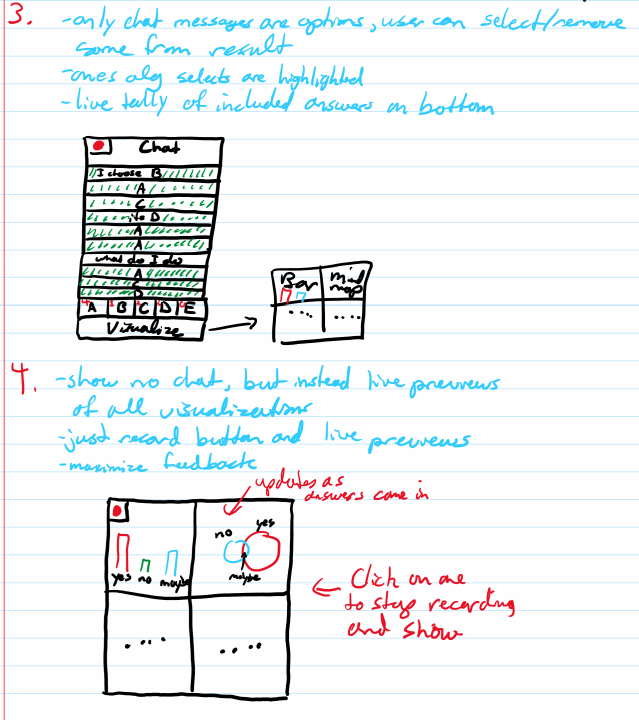 3. -only chat messages are options, user can select/remove
some from result
-ones alg selects are highlighted
-live tally of included answers on bottom
Chat
I choose B
A
C
its D
A
A
what do I do
A
C
D
A B C D E
Visualize
Bar Mind map
....  ....
4. -show no chat, but instead live previews
of all visualizations
-just record button and live previews
-maximize feedback
updates as
answers come in
no yes
maybe
yes no maybe
Click on one
to stop recording
and show
....  ....